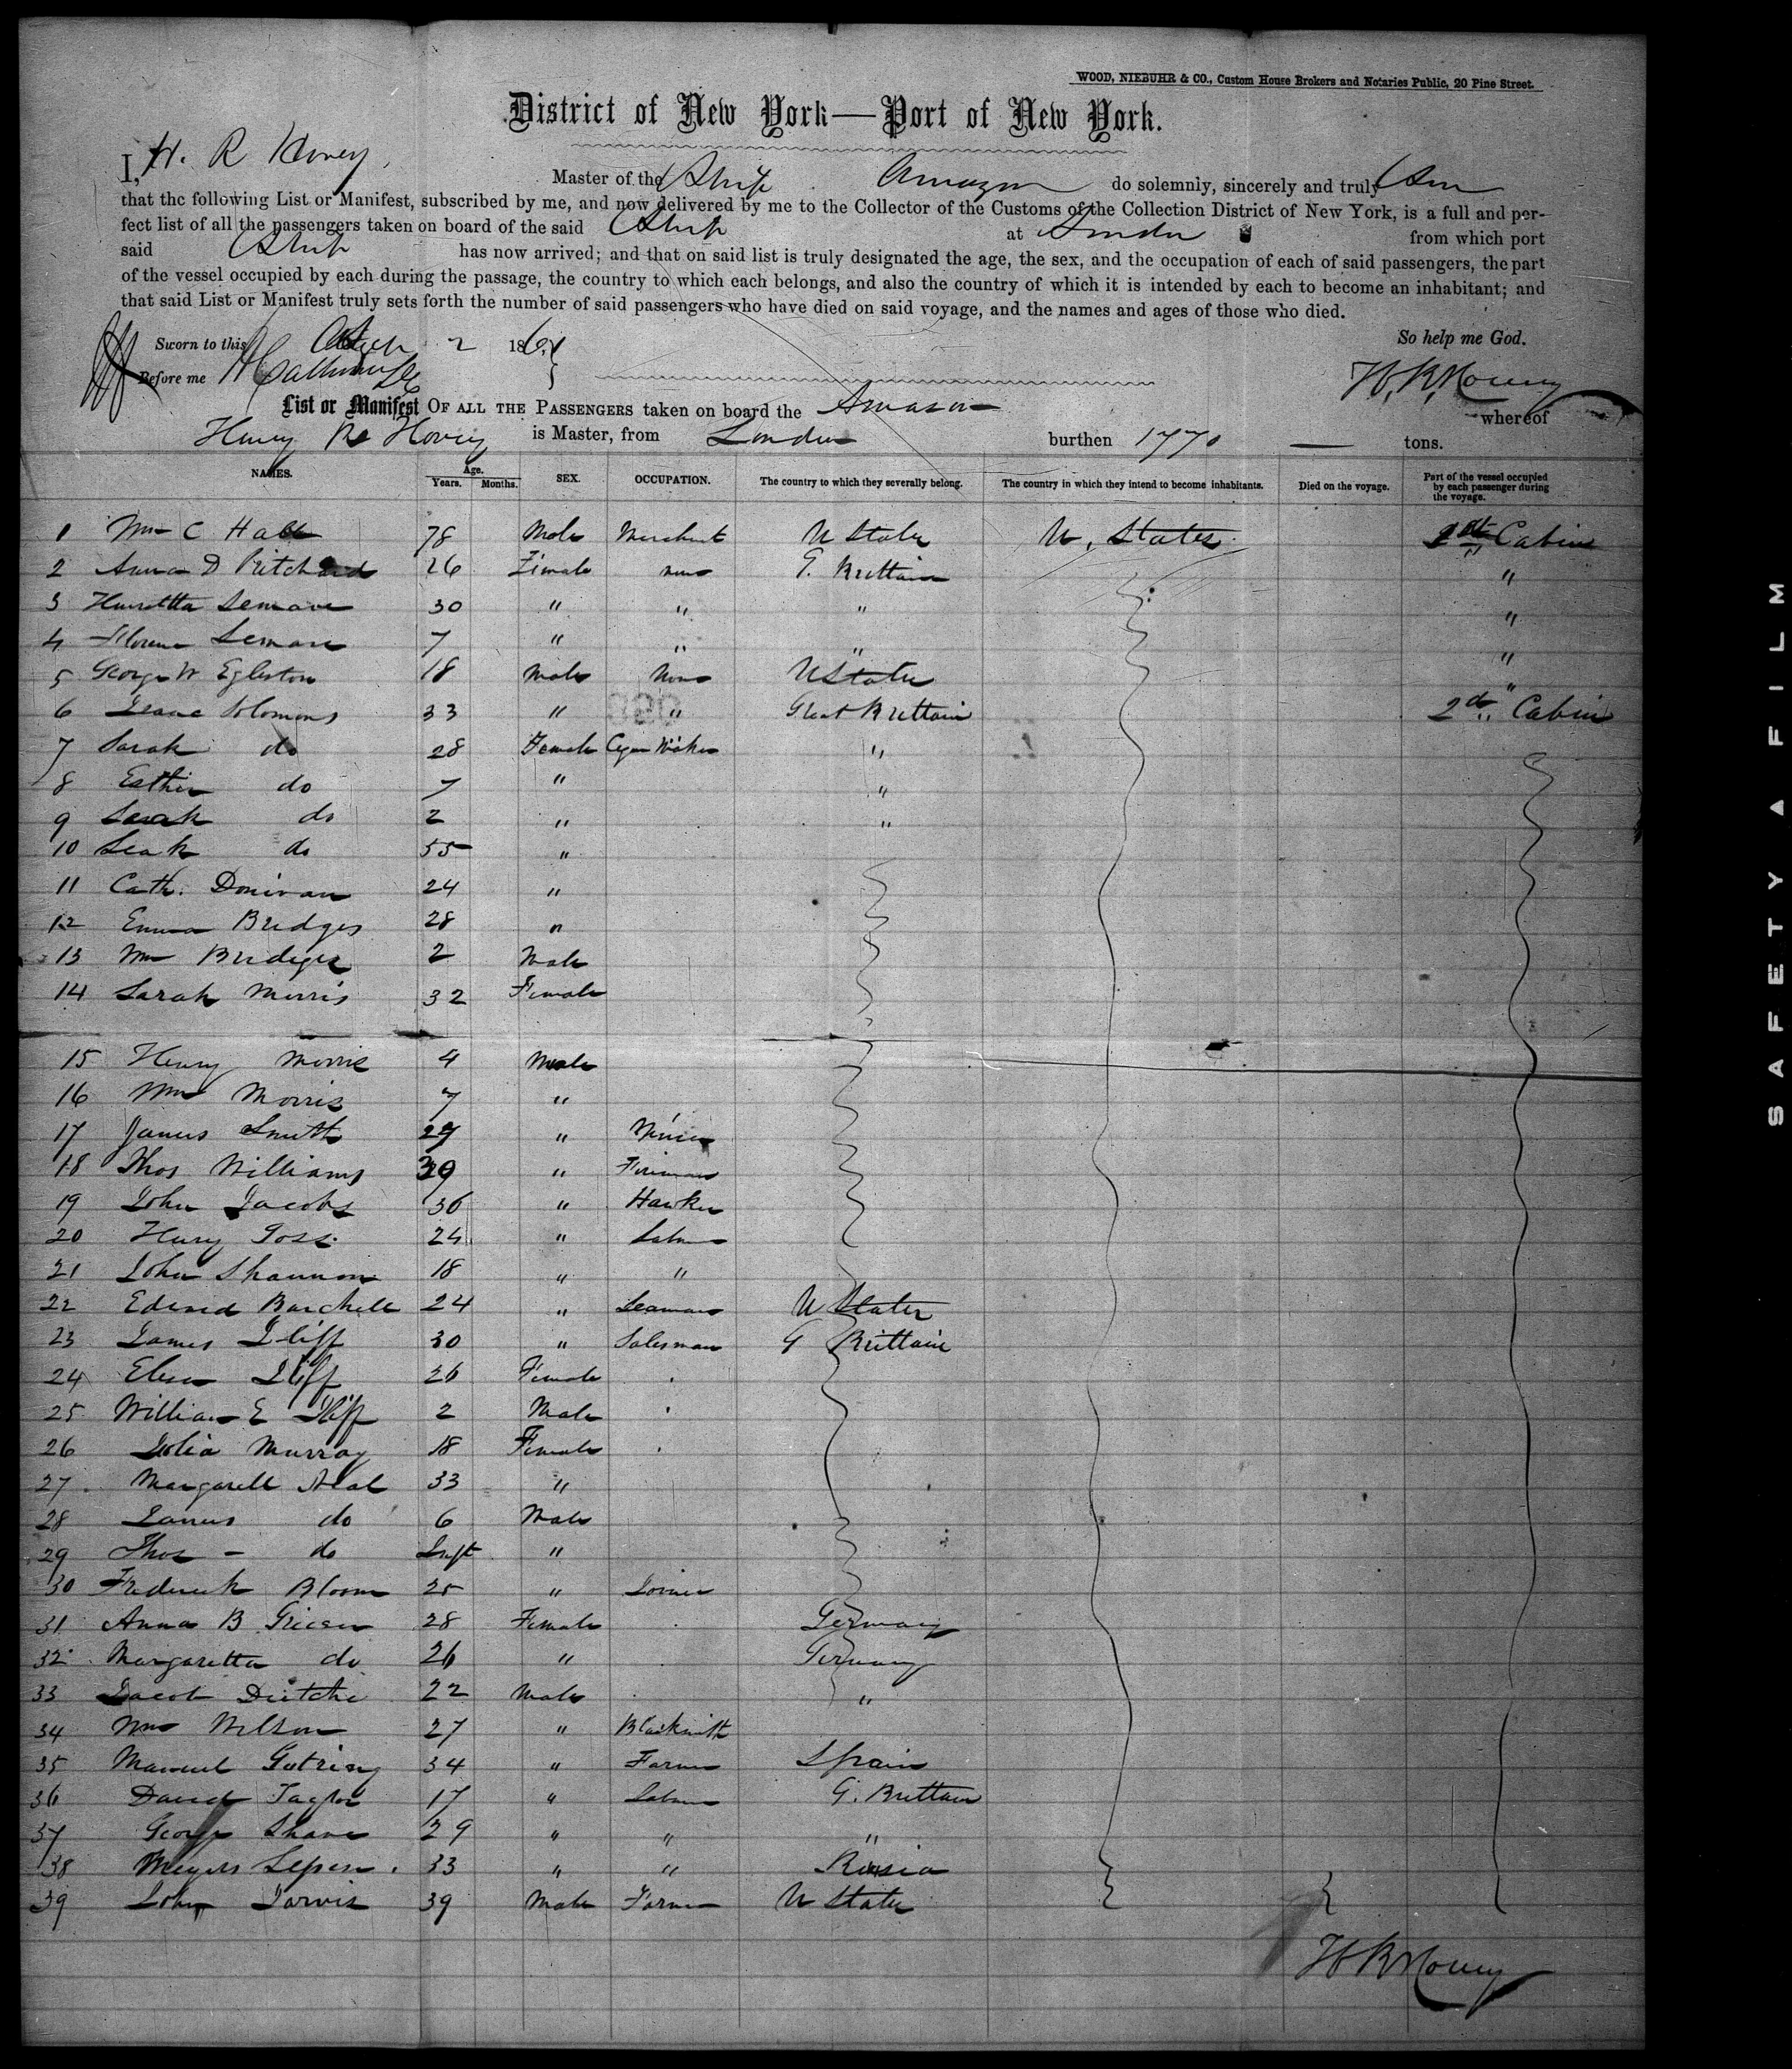 WOOD, NIEBUHR & CO., Custom House Brokers and Notaries Public, 20 Pine Street.
District of New York—Port of New York.
I, H. R Hovey, Master of the Ship Amazon do solemnly, sincerely and truly
that the following List or Manifest, subscribed by me, and now delivered by me to the Collector of the Customs of the Collection District of New York, is a full and per-
fect list of all the passengers taken on board of the said Ship at London from which port
said Ship has now arrived; and that on said list is truly designated the age, the sex, and the occupation of each of said passengers, the part
of the vessel occupied by each during the passage, the country to which each belongs, and also the country of which it is intended by each to become an inhabitant; and
that said List or Manifest truly sets forth the number of said passengers who have died on said voyage, and the names and ages of those who died.
Sworn to this 2 186 So help me God.
Before me H. R. Hovey
List or Manifest OF ALL THE PASSENGERS taken on board the Amazon whereof
Henry R Hovey is Master, from London burthen 1770 tons.
NAMES. Age. Years. Months. SEX. OCCUPATION. The country to which they severally belong. The country in which they intend to become inhabitants. Died on the voyage. Part of the vessel occupied by each passenger during the voyage.
1 Wm C Hall 78 Male Merchant U States U. States Cabin
2 Anna D Pritchard 26 Female none G. Brittain "
3 Henrietta Lemare 30 " " " "
4 Florence Lemare 7 " " " "
5 George W Egleston 18 Male None U States "
6 Isaac Solomons 33 " " Great Brittain 2d Cabin
7 Sarah do 28 Female Cigar Maker "
8 Esther do 7 " "
9 Sarah do 2 " "
10 Leah do 55 "
11 Cath. Donivan 24 "
12 Emma Bridges 28 "
13 Wm Bridges 2 Male
14 Sarah Morris 32 Female
15 Henry Morris 4 Male
16 Wm Morris 7 "
17 James Smith 27 " Miner
18 Thos Williams 39 " Fireman
19 John Jacobs 36 " Hawker
20 Henry Goss 24 " Labr
21 John Shannon 18 " "
22 Edward Barchell 24 " Seaman U States
23 James Iliff 30 " Salesman G Brittain
24 Eliza Iliff 26 Female
25 William E Iliff 2 Male
26 Julia Murray 18 Female
27 Margarett 33 "
28 James do 6 Male
29 Thos - do Inft "
30 Frederick Bloom 25 " Joiner
31 Anna B 28 Female Germany
32 Margaretta do 26 " Germany
33 Jacob 22 Male "
34 Wm Wilson 27 " Blacksmith
35 Manuel 34 " Farmer Spain
36 David Taylor 17 " Labr G. Brittain
37 George Shave 29 " " "
38 Meyers 33 " " Russia
39 John Jarvis 39 Male Farmer U States
H R Hovey
SAFETY A FILM